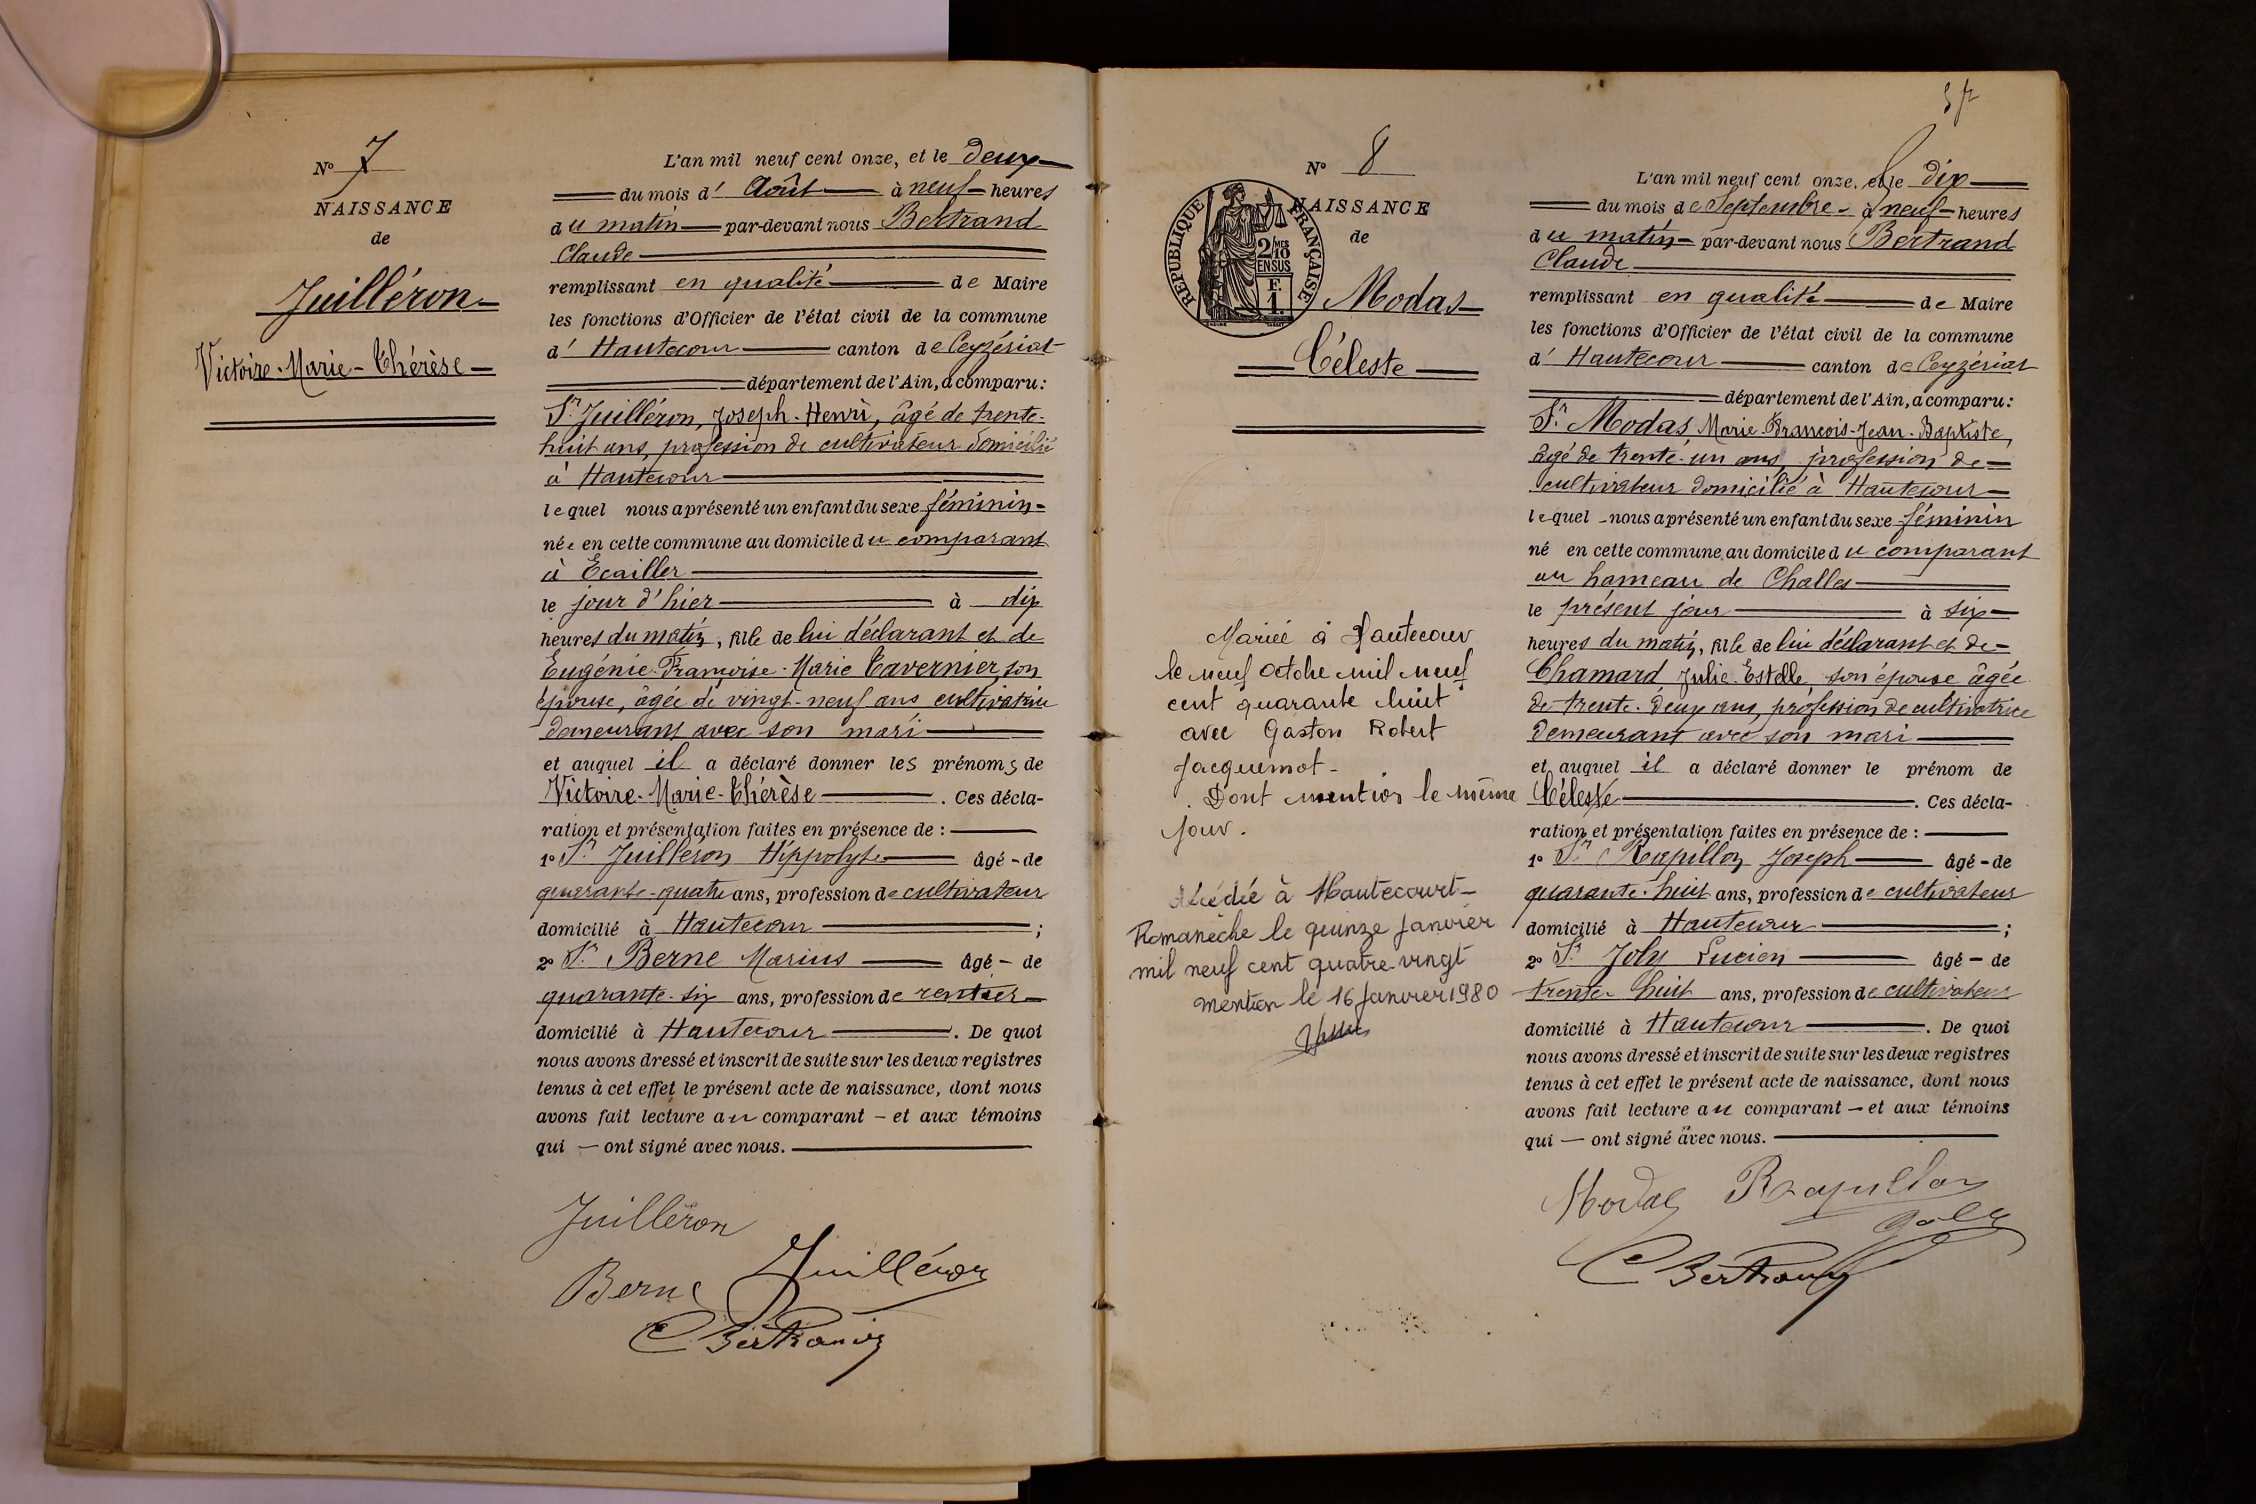 N° 7
NAISSANCE
de
Juilléron
Victoire-Marie-Thérèse
L'an mil neuf cent onze, et le deux
du mois d' Août à neuf heures
du matin par-devant nous Bertrand
Claude
remplissant en qualité de Maire
les fonctions d'Officier de l'état civil de la commune
d' Hautecour canton de Ceyzériat
département de l'Ain, a comparu:
Sr Juilléron, Joseph-Henri, âgé de trente-
huit ans, profession de cultivateur domicilié
à Hautecour
lequel nous a présenté un enfant du sexe féminin
née en cette commune au domicile du comparant
à Ecailler
le jour d'hier à dix
heures du matin, fille de lui déclarant et de
Eugénie-Françoise-Marie Tavernier, son
épouse, âgée de vingt-neuf ans cultivatrice
demeurant avec son mari
et auquel il a déclaré donner les prénoms de
Victoire-Marie-Thérèse. Ces décla-
ration et présentation faites en présence de :
1° Sr Juilléron Hippolyte âgé - de
quarante-quatre ans, profession de cultivateur
domicilié à Hautecour ;
2° Sr Berne Marius âgé - de
quarante-six ans, profession de rentier
domicilié à Hautecour. De quoi
nous avons dressé et inscrit de suite sur les deux registres
tenus à cet effet le présent acte de naissance, dont nous
avons fait lecture au comparant - et aux témoins
qui - ont signé avec nous.
Juilléron
Juilléron
Berne
C Bertrand
N° 8
NAISSANCE
de
RÉPUBLIQUE FRANÇAISE
2/10 MES
EN SUS
F.
1.
Modas
Céleste
Mariée à Hautecour
le neuf octobre mil neuf
cent quarante huit
avec Gaston Robert
Jacquemot-
Dont mention le même
jour.
Décédée à Hautecourt-
Romanèche le quinze Janvier
mil neuf cent quatre-vingt
mention le 16 Janvier 1980
L'an mil neuf cent onze, et le dix
du mois de Septembre à neuf heures
du matin par-devant nous Bertrand
Claude
remplissant en qualité de Maire
les fonctions d'Officier de l'état civil de la commune
d' Hautecour canton de Ceyzériat
département de l'Ain, a comparu:
Sr Modas, Marie-François-Jean-Baptiste,
âgé de trente-un ans, profession de
cultivateur domicilié à Hautecour
lequel nous a présenté un enfant du sexe féminin
né en cette commune au domicile du comparant
au hameau de Challes
le présent jour à six
heures du matin, fille de lui déclarant et de
Chamard Julie-Estelle, son épouse âgée
de trente-deux ans, profession de cultivatrice
demeurant avec son mari
et auquel il a déclaré donner le prénom de
Céleste. Ces décla-
ration et présentation faites en présence de :
1° Sr Rapillon Joseph âgé - de
quarante-huit ans, profession de cultivateur
domicilié à Hautecour ;
2° Sr Joly Lucien âgé - de
trente-huit ans, profession de cultivateur
domicilié à Hautecour. De quoi
nous avons dressé et inscrit de suite sur les deux registres
tenus à cet effet le présent acte de naissance, dont nous
avons fait lecture au comparant - et aux témoins
qui - ont signé avec nous.
Modas Rapillon
Joly
C Bertrand